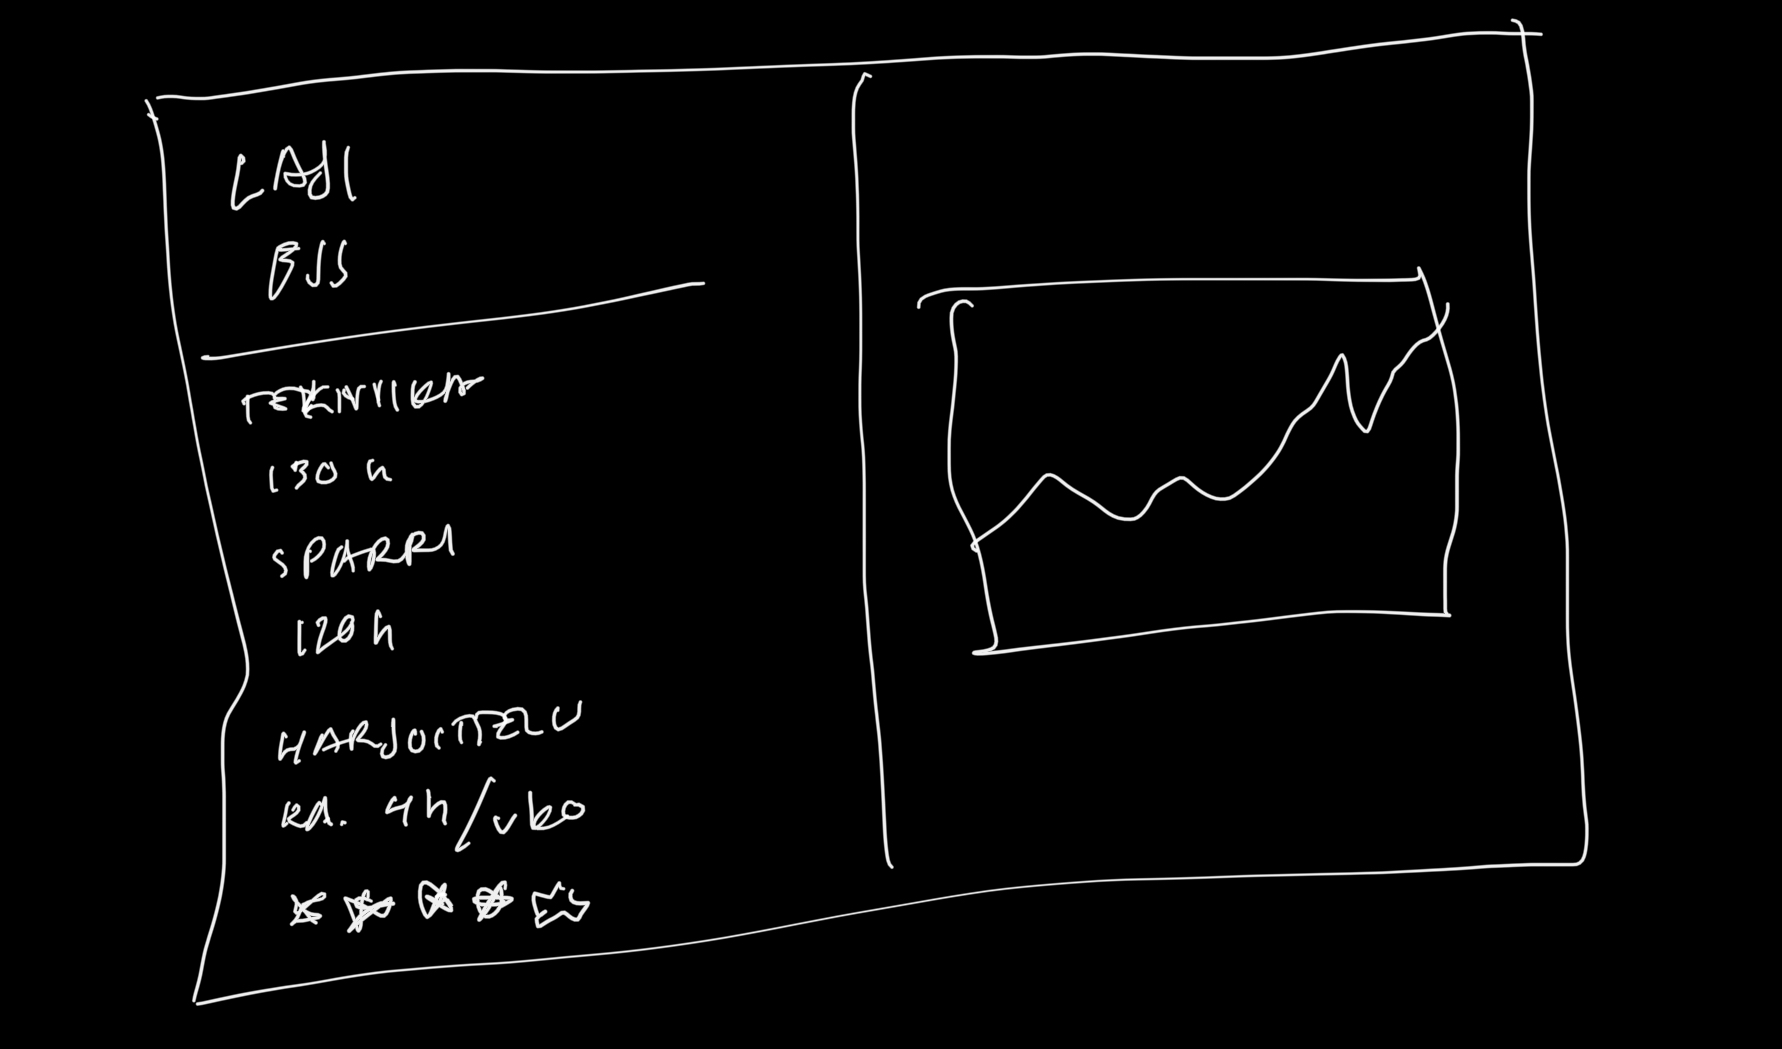 LAJI
BJJ
TEKNIIKKA
130 h
SPARRI
120h
HARJOITTELU
KA. 4h/vko